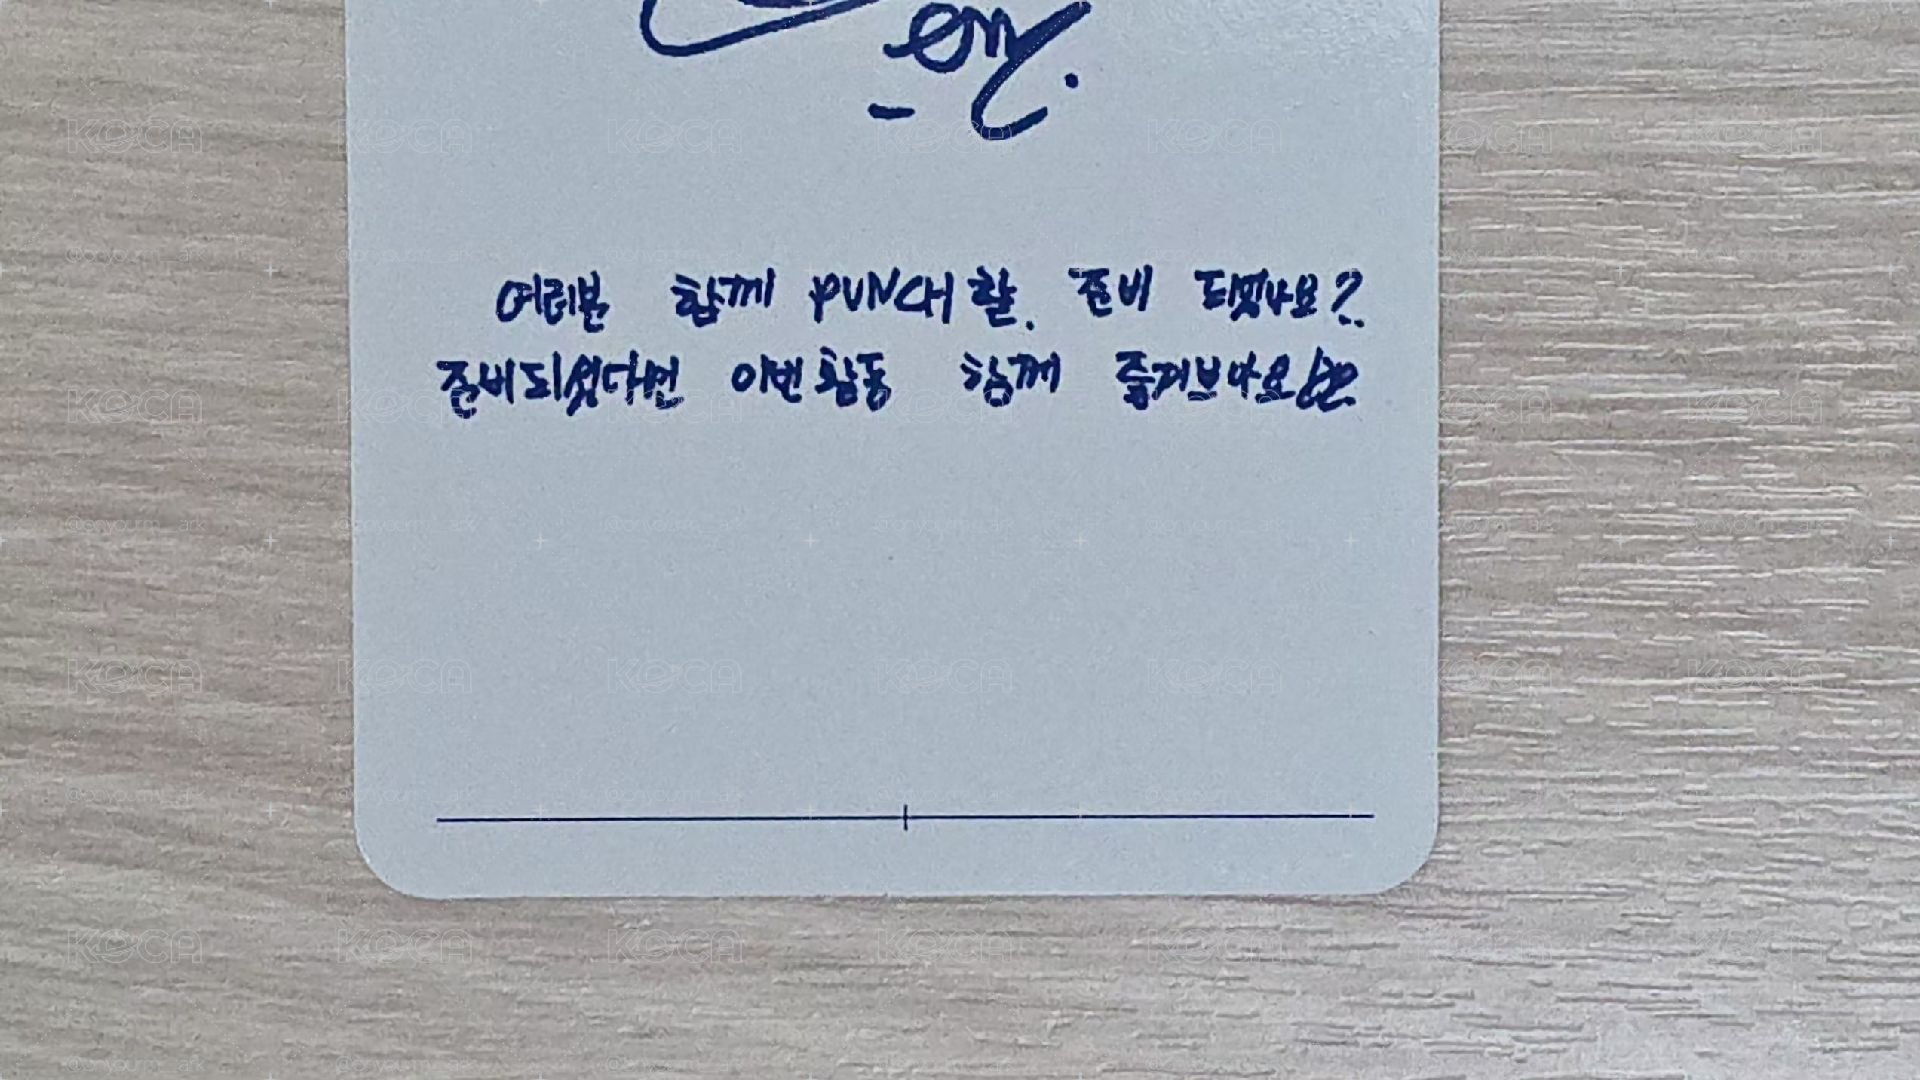 여러분 함께 PUNCH 할 준비 되었나요?
준비되셨다면 이번 활동 함께 즐겨보아요